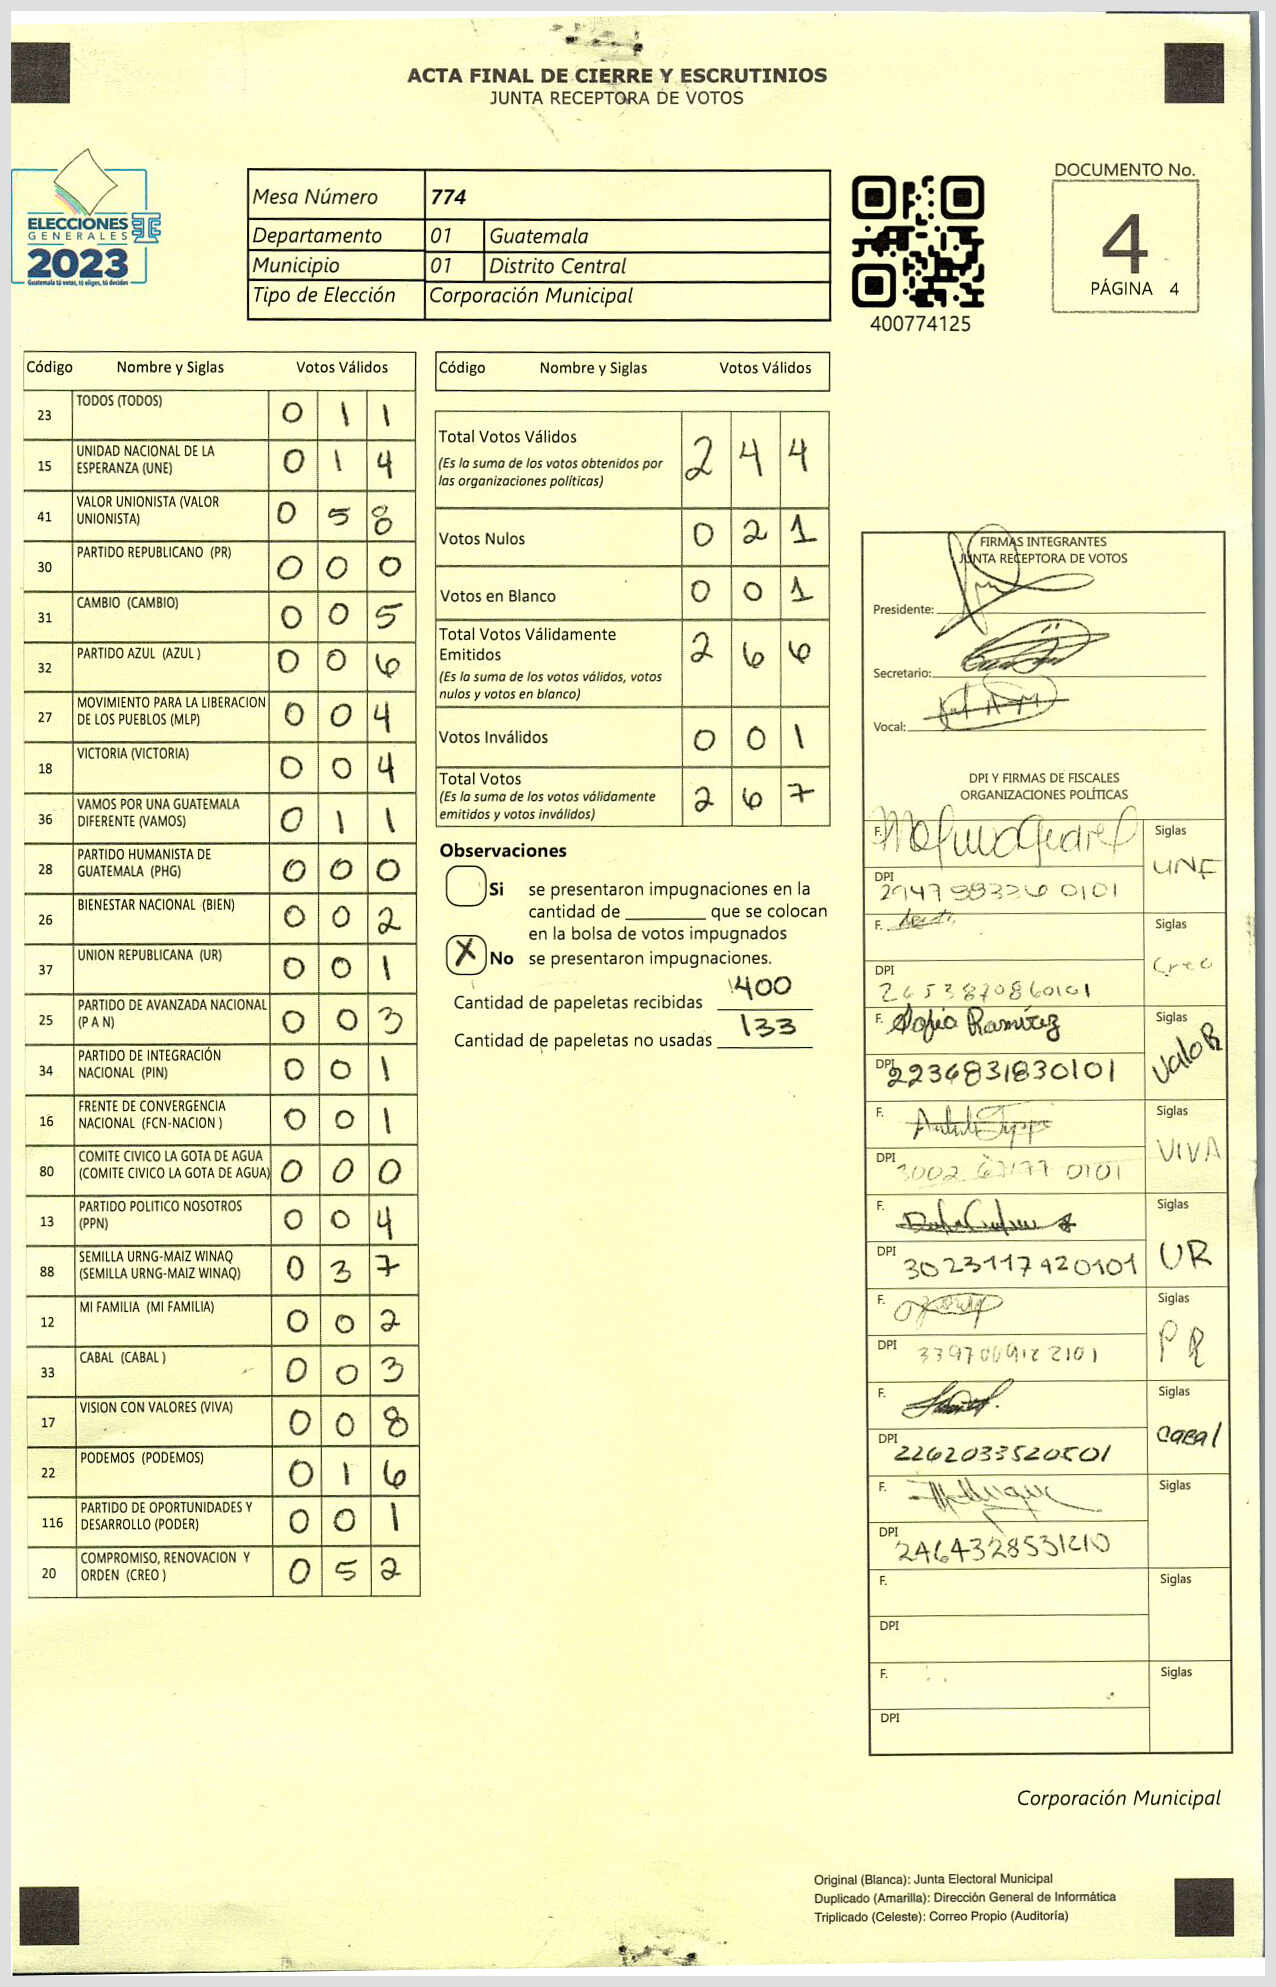 ACTA FINAL DE CIERRE Y ESCRUTINIOS
JUNTA RECEPTORA DE VOTOS
ELECCIONES
GENERALES
2023
Guatemala tú votas, tú eliges, tú decides
Mesa Número 774
Departamento 01 Guatemala
Municipio 01 Distrito Central
Tipo de Elección Corporación Municipal
400774125
DOCUMENTO No.
4
PÁGINA 4
Código Nombre y Siglas Votos Válidos
23 TODOS (TODOS) 0 1 1
15 UNIDAD NACIONAL DE LA
ESPERANZA (UNE) 0 1 4
41 VALOR UNIONISTA (VALOR
UNIONISTA) 0 5 8
30 PARTIDO REPUBLICANO (PR) 0 0 0
31 CAMBIO (CAMBIO) 0 0 5
32 PARTIDO AZUL (AZUL ) 0 0 6
27 MOVIMIENTO PARA LA LIBERACION
DE LOS PUEBLOS (MLP) 0 0 4
18 VICTORIA (VICTORIA) 0 0 4
36 VAMOS POR UNA GUATEMALA
DIFERENTE (VAMOS) 0 1 1
28 PARTIDO HUMANISTA DE
GUATEMALA (PHG) 0 0 0
26 BIENESTAR NACIONAL (BIEN) 0 0 2
37 UNION REPUBLICANA (UR) 0 0 1
25 PARTIDO DE AVANZADA NACIONAL
(P A N) 0 0 3
34 PARTIDO DE INTEGRACIÓN
NACIONAL (PIN) 0 0 1
16 FRENTE DE CONVERGENCIA
NACIONAL (FCN-NACION ) 0 0 1
80 COMITE CIVICO LA GOTA DE AGUA
(COMITE CIVICO LA GOTA DE AGUA) 0 0 0
13 PARTIDO POLITICO NOSOTROS
(PPN) 0 0 4
88 SEMILLA URNG-MAIZ WINAQ
(SEMILLA URNG-MAIZ WINAQ) 0 3 7
12 MI FAMILIA (MI FAMILIA) 0 0 2
33 CABAL (CABAL ) 0 0 3
17 VISION CON VALORES (VIVA) 0 0 8
22 PODEMOS (PODEMOS) 0 1 6
116 PARTIDO DE OPORTUNIDADES Y
DESARROLLO (PODER) 0 0 1
20 COMPROMISO, RENOVACION Y
ORDEN (CREO ) 0 5 2
Código Nombre y Siglas Votos Válidos
Total Votos Válidos 2 4 4
(Es la suma de los votos obtenidos por
las organizaciones políticas)
Votos Nulos 0 2 1
Votos en Blanco 0 0 1
Total Votos Válidamente
Emitidos 2 6 6
(Es la suma de los votos válidos, votos
nulos y votos en blanco)
Votos Inválidos 0 0 1
Total Votos 2 6 7
(Es la suma de los votos válidamente
emitidos y votos inválidos)
Observaciones
Si se presentaron impugnaciones en la
cantidad de ________ que se colocan
en la bolsa de votos impugnados
X No se presentaron impugnaciones.
Cantidad de papeletas recibidas 400
Cantidad de papeletas no usadas 133
FIRMAS INTEGRANTES
JUNTA RECEPTORA DE VOTOS
Presidente:
Secretario:
Vocal:
DPI Y FIRMAS DE FISCALES
ORGANIZACIONES POLÍTICAS
F. Siglas
UNE
DPI
F. Siglas
Creo
DPI
2653870860101
F. Sofia Ramírez Siglas
Valor
DPI 2236831830101
F. Siglas
VIVA
DPI
F. Siglas
UR
DPI 3023117420101
F. Siglas
PR
DPI
F. Siglas
Cabal
DPI
2262033520501
F. Siglas
DPI
F. Siglas
DPI
F. Siglas
DPI
Corporación Municipal
Original (Blanca): Junta Electoral Municipal
Duplicado (Amarilla): Dirección General de Informática
Triplicado (Celeste): Correo Propio (Auditoría)